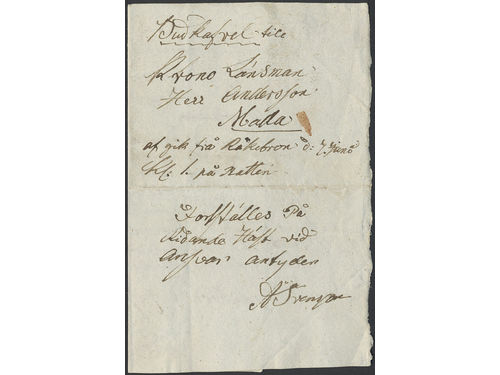 Budkafvel till
Krono Länsman
Herr Andersson
Måla
af gik från Råkebron d: 7 Junii
Kl: 1. på Natten
Forställes På
Ridande Häst vid
Ansvar antyden
ASvenson